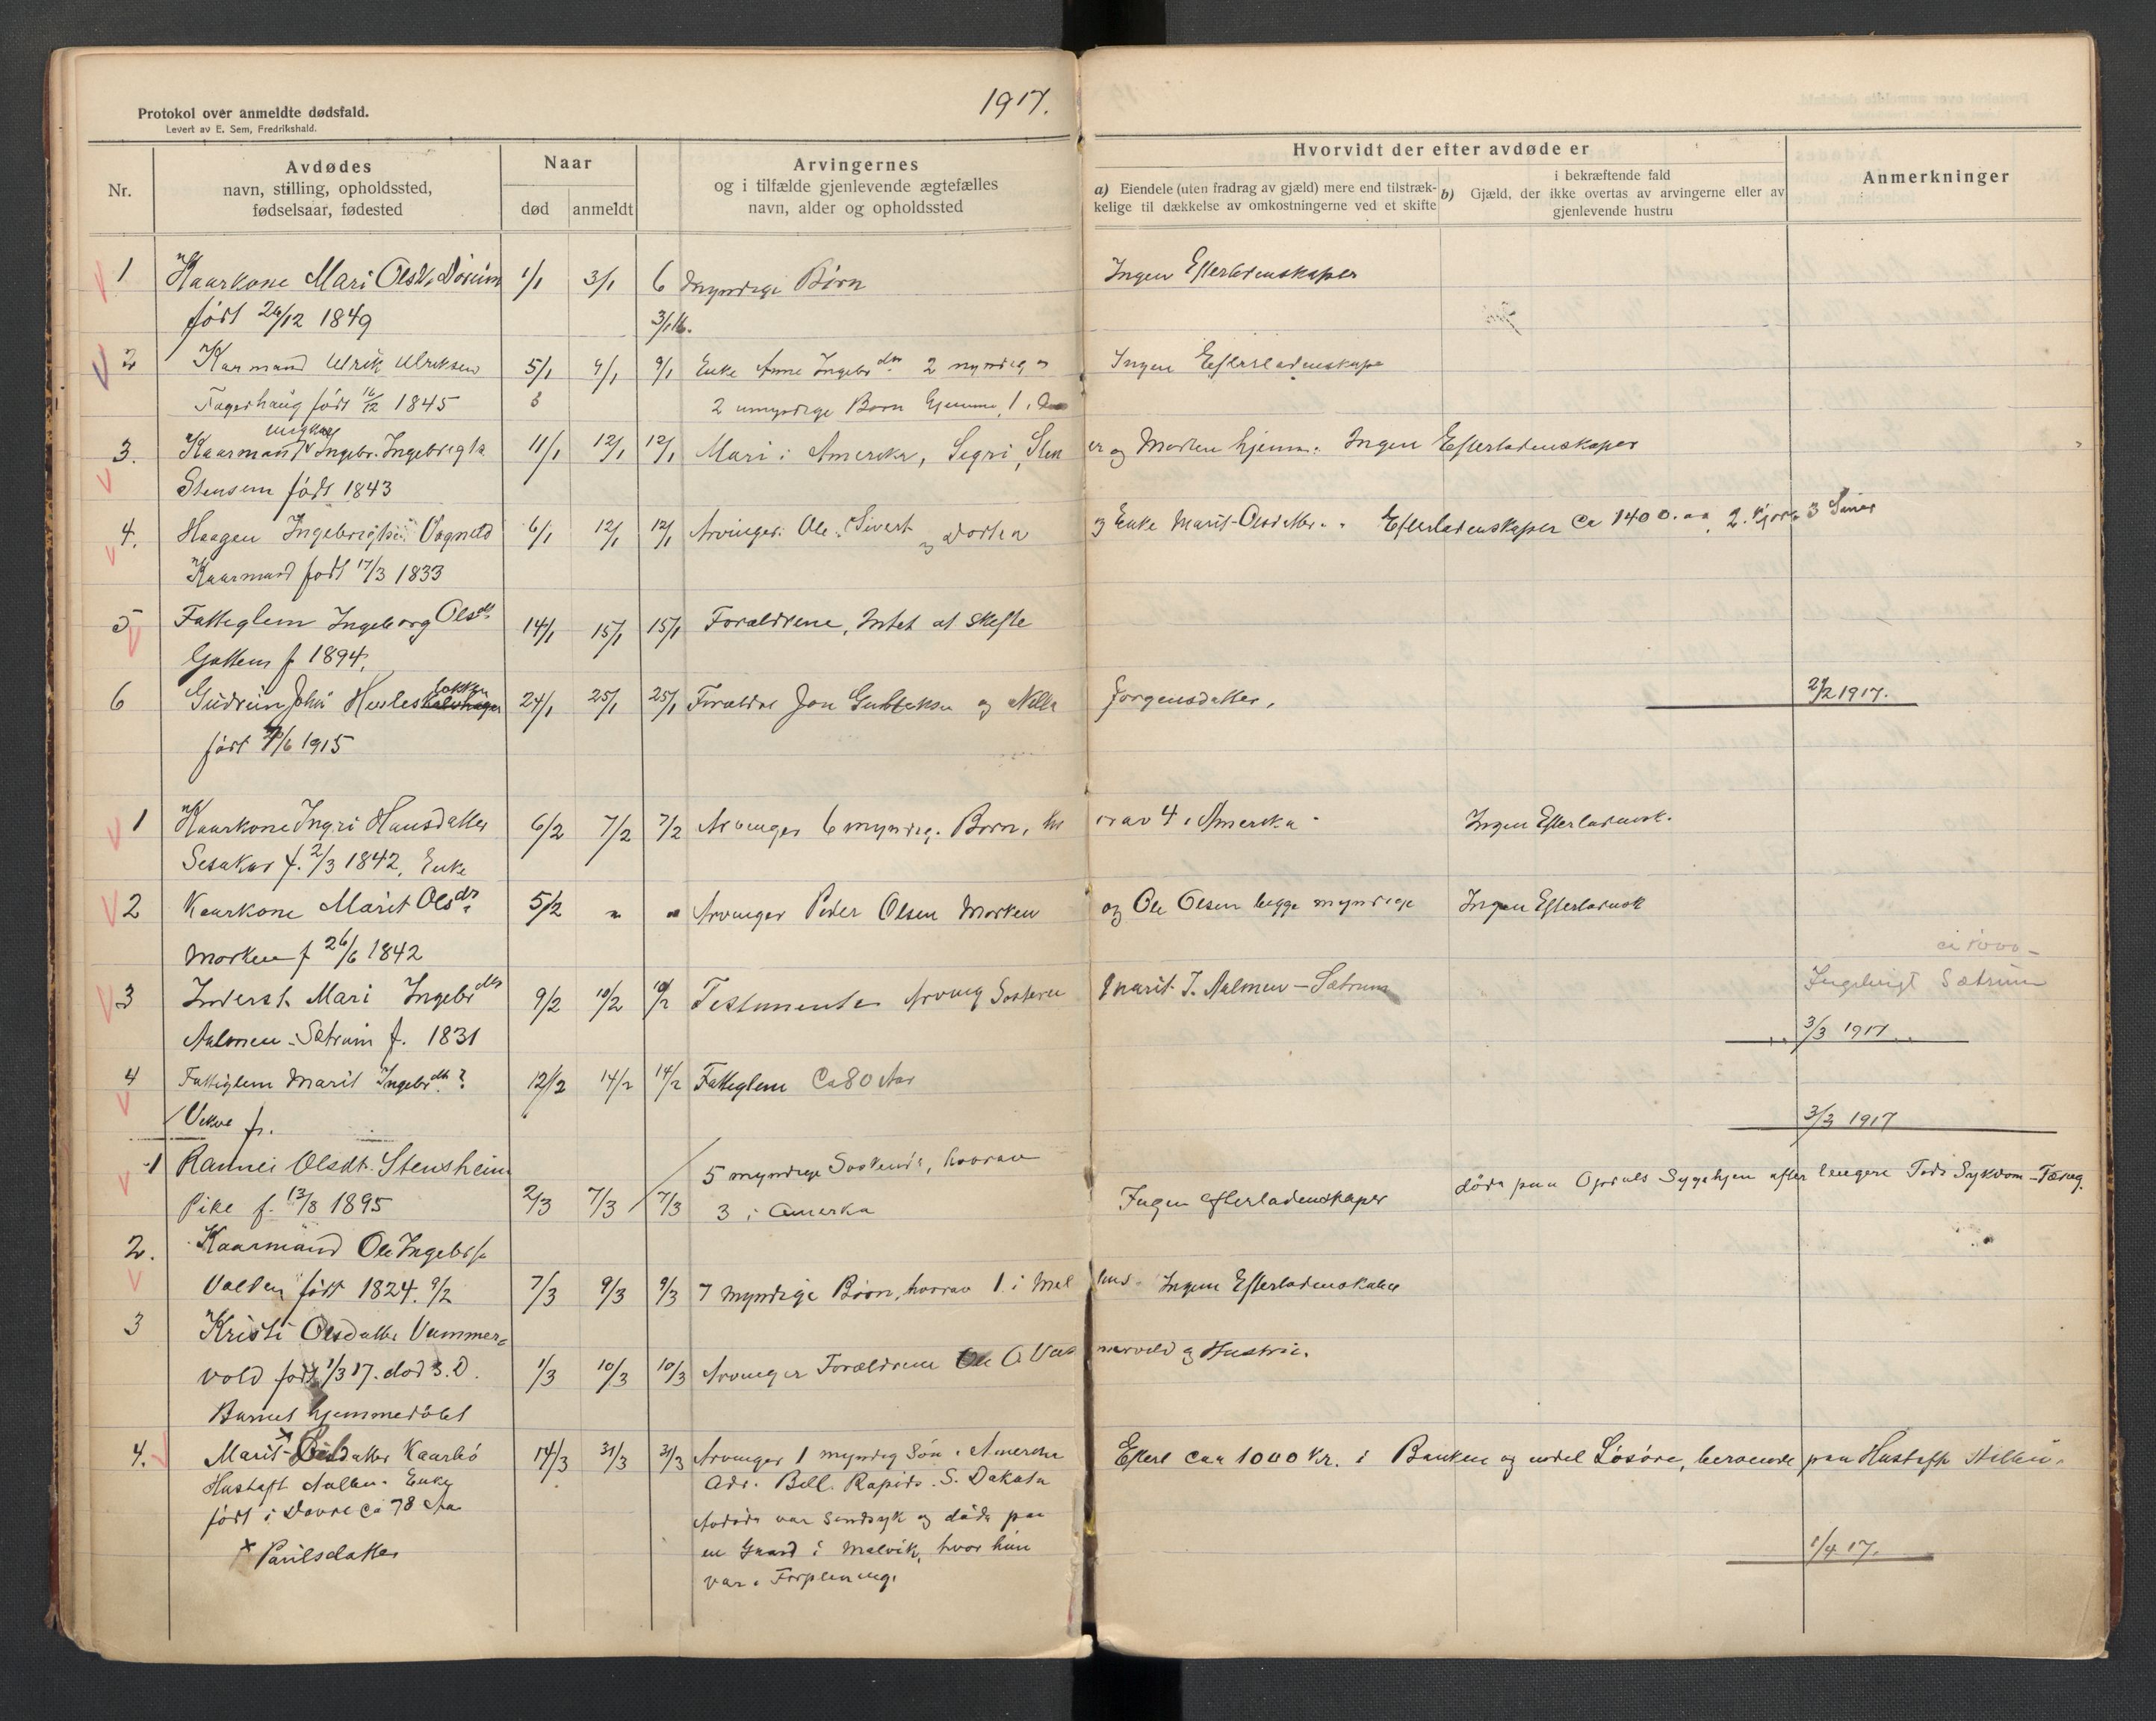 1917.
Protokol over anmeldte dødsfald.
Levert av E. Sem, Fredrikshald.
Nr.
Avdødes
navn, stilling, opholdssted,
fødselsaar, fødested
Naar
død
anmeldt
Arvingernes
og i tilfælde gjenlevende ægtefælles
navn, alder og opholdssted
Hvorvidt der efter avdøde er
a) Eiendele (uten fradrag av gjæld) mere end tilstræk-
kelige til dækkelse av omkostningerne ved et skifte
i bekræftende fald
b) Gjæld, der ikke overtas av arvingerne eller av
gjenlevende hustru
Anmerkninger
1 Kaarkone Mari Olsdr Dörum 1/1 3/1 6 myndige Börn Ingen Efterladenskaper
født 26/12 1849 3/1 16.
2 Kaarmand Ulrik Ulriksen 5/1 9/1 9/1 Enke Anne Ingebrdtr 2 myndige og Ingen Efterladenskape
Fagerhaug født 16/12 1845 2 umyndige Born hjemme, 1 i
ungkar
3. Kaarmand Ingebr. Ingebrigts 11/1 12/1 12/1 Mari i Amerika, Segri, Sten er og Morten hjemm. Ingen Efterladenskaper
Stensem født 1843
4. Haagen Ingebrigts. Vognild 6/1 12/1 12/1 Arvinger. Ole, Sivert og Dortea og Enke Marit Olsdatter. Efterladenskaper Ca 1400.00 2 Kjør 3 Sauer
Kaarmand født 17/3 1833
5 Fattiglem Ingeborg Olsdtr 14/1 15/1 15/1 Forældrene, Intet at skifte
Gottem f 1894.
6 Gudrun Johs Husles løkken 24/1 25/1 25/1 Forældre Jon Gulleksen og Nella Jörgensdatter. 2/2 1917.
født /6 1915
1 Kaarkone Ingri Hansdatter 6/2 7/2 7/2 Arvinger 6 myndig. Born, hv orav 4 i Amerika Ingen Efterladensk.
Sesaker f. 2/3 1842, Enke
2 Kaarkone Marit Olsdr 5/2 " " Arvinger Peder Olsen Morken og Ole Olsen begge myndige Ingen Efterladensk
Morken f 26/6 1842
3 Inderst. Mari Ingebrdtr 9/2 10/2 10/2 Testamente Arving Sosteren Marit I. Aalmen - Sætrum Ingebrigt Sætrum
Aalmen - Sætrum f. 1831 3/3 1917
4 Fattiglem Marit Ingebrdtr? 12/2 14/2 14/2 Fattiglem Ca 80 Aar
Vekve f. 3/3 1917
1 Rannei Olsdtr. Stensheim 5 myndige Soskende, hvorav
Pike f. 13/8 1895 2/3 7/3 7/3 3 i Amerka Ingen efterladenskaper døde paa Opdals Sygehjem efter lengere Tids Sykdom - Tæring.
2. Kaarmand Ole Ingebrs
Volden født 1824. 9/2 7/3 9/3 9/3 7 myndige Börn, hvorav 1 i Mel hus. Ingen Efterladenskaber
3 Kristi Olsdatter Vammer=
vold født 1/3 17. dod s. D. 1/3 10/3 10/3 Arvinger Forældrene Ole O. Vam mervold og Hustru.
Barnet hjemmedöbt
4. Marit x datter Kaarbö 14/3 31/3 31/3 Arvinger 1 myndig Sön i Amerika Efterl caa 1000 Kr. i Banken og endel Løsøre, beroende paa Hustoft
Hustoft Aalbu. Enke Adr. Dell. Rapids. S. Dakota
født i Dovre Ca 78 Aar Avdøde var sindsyk og døde paa
x Paulsdatter en Gaard i Malvik, hvor hun 1/4 17.
var i Forpleining.